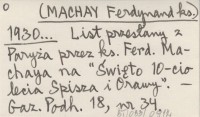 (MACHAY Ferdynand ks.)
1930... List przesłany z
Paryża przez ks. Ferd. Ma-
chaya na "Święto 10-cio
lecia Spisza i Orawy". —
Gaz. Podh. 18, nr 34.